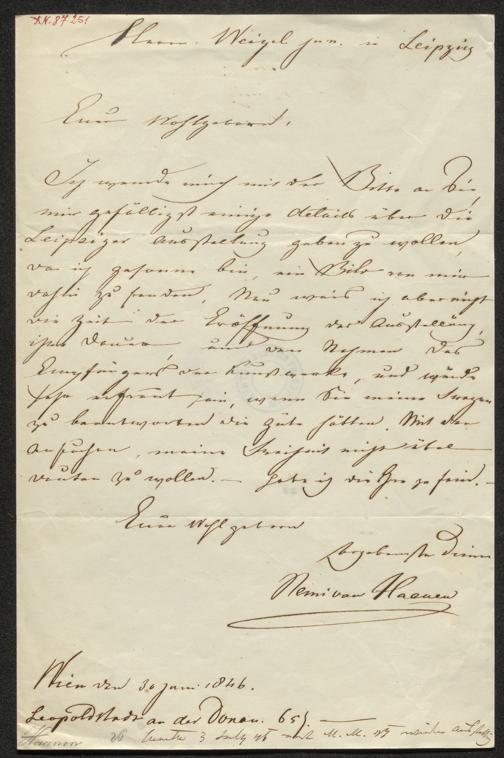 I.N. 87251
Herrn Weigel jun. in Leipzig
Euer Wohlgeboren!
Ich wende mich mit der Bitte an Sie,
mir gefälligst einige details über die
Leipziger Ausstellung geben zu wollen,
da ich gesonnen bin, ein Bild von mir
dahin zu senden. Nun weis ich aber nicht
die Zeit der Eröffnung der Ausstellung,
ihre Dauer und den Nahmen des
Empfängers der Kunstwerke, und würde
sehr erfreut sein, wenn Sie meine Fragen
zu beantworten die Güte hätten. Mit dem
Ansuchen, meine Freiheit nicht übel
deuten zu wollen. — habe ich die Ehre zu sein. —
Euer Wohlgeboren
Ergebenster Diener
Remi van Haanen
Wien den 30 Juni 1846.
Leopoldstadt an der Donau. 651. —
Haanen
3 July 46